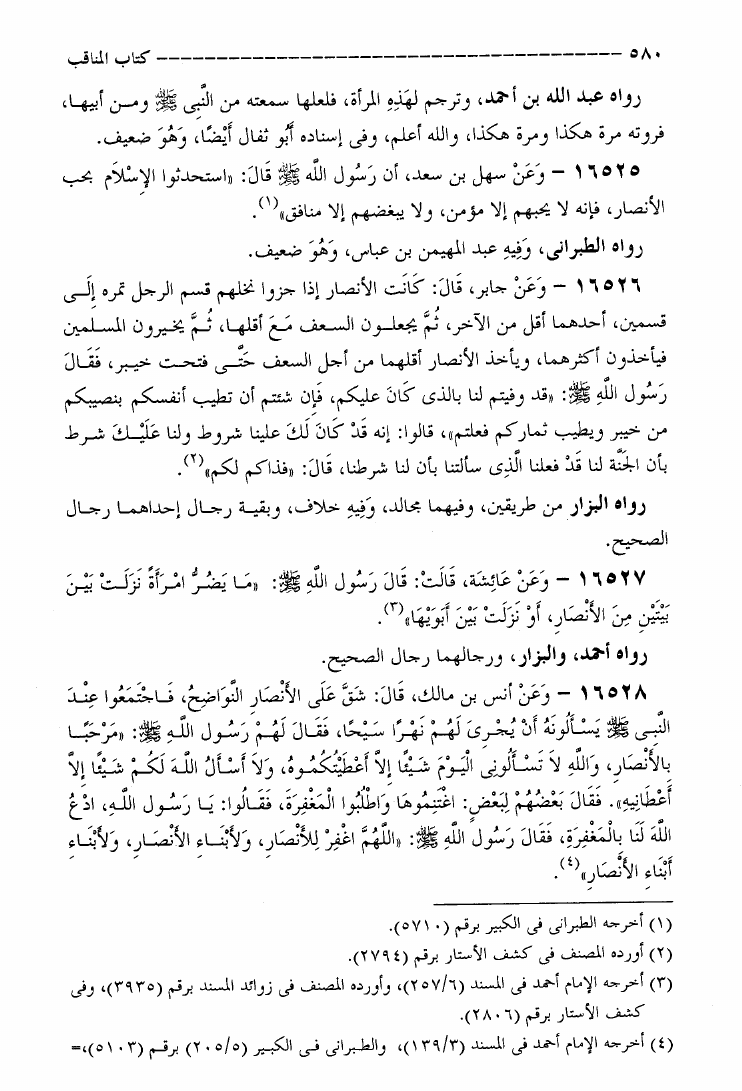 ٥٨٠ ------------------------------------------- كتاب المناقب
رواه عبد الله بن أحمد، وترجم لهَذِهِ المرأة، فلعلها سمعته من النَّبِى ﷺ ومـن أبيهـا،
فروته مرة هكذا ومرة هكذا، والله أعلم، وفى إسناده أَبُو ثفال أَيْضًا، وَهُوَ ضعيف.
١٦٥٢٥ – وَعَنْ سهل بن سعد، أن رَسُول اللَّهِ ﷺ قَالَ: «استحدثوا الإِسْلاَم بحب
الأنصار، فإنه لا يحبهم إلا مؤمن، ولا يبغضهم إلا منافق»(١).
رواه الطبرانى، وَفِيهِ عبد المهيمن بن عباس، وَهُوَ ضعيف.
١٦٥٢٦ – وَعَنْ جابر، قَالَ: كَانَت الأنصار إذا جزوا نخلهم قسم الرجل تمره إِلَــى
قسمين، أحدهما أقل من الآخر، ثُمَّ يجعلــون السـعف مَـعَ أقلهـا، ثُـمَّ يخـيرون المسـلمين
فيأخذون أكثرهما، ويأخذ الأنصار أقلهما من أجل السعف حَتَّــى فتحـت خيـبر، فَقَـالَ
رَسُول اللَّهِ ﷺ: «قد وفيتم لنا بالذى كَانَ عليكم، فَإِن شئتم أن تطيب أنفسكم بنصيبكم
من خيبر ويطيب ثماركم فعلتم»، قالوا: إنه قَدْ كَانَ لَكَ علينا شروط ولنا عَلَيْــكَ شـرط
بأن الجَنَّة لنا قَدْ فعلنا الَّذِى سألتنا بأن لنا شرطنا، قَالَ: «فذاكم لكم»(٢).
رواه البزار من طريقين، وفيهما مجالد، وَفِيهِ خلاف، وبقيـة رجـال إحداهمـا رجـال
الصحيح.
١٦٥٢٧ – وَعَنْ عَائِشَة، قَالَتْ: قَالَ رَسُول اللَّهِ ﷺ: «مَـا يَضُـرُّ امْـرَأَةً نَزَلَـتْ بَيْـنَ
بَيْتَيْنِ مِنَ الأَنْصَارِ، أَوْ نَزَلَتْ بَيْنَ أَبَوَيْهَا»(٣).
رواه أحمد، والبزار، ورجالهما رجال الصحيح.
١٦٥٢٨ – وَعَنْ أنس بن مالك، قَالَ: شَقَّ عَلَى الأَنْصَارِ النَّوَاضِحُ، فَـاجْتَمَعُوا عِنْـدَ
النَّبِـى ﷺ يَسْـأَلُونَهُ أَنْ يُجْـرِىَ لَهُـمْ نَهْـرًا سَـيْحًا، فَقَـالَ لَهُـمْ رَسُـول اللَّـهِ ﷺ: «مَرْحَبًـا
بِالأَنْصَارِ، وَاللَّهِ لاَ تَسْـأَلُونِى الْيَـوْمَ شَـيْئًا إِلاَّ أَعْطَيْتُكُمُـوهُ، وَلاَ أَسْـأَلُ اللَّـهَ لَكُـمْ شَـيْئًا إِلاَّ
أَعْطَانِيهِ». فَقَالَ بَعْضُهُمْ لِبَعْضٍ: اغْتَنِمُوهَا وَاطْلُبُوا الْمَغْفِرَةَ، فَقَـالُوا: يَـا رَسُـول اللَّـهِ، ادْعُ
اللَّهَ لَنَا بِالْمَغْفِرَةِ، فَقَالَ رَسُول اللَّهِ ﷺ: «اللَّهُمَّ اغْفِرْ لِلأَنْصَارِ، وَلأَبْنَـاءِ الأَنْصَـارِ، وَلأَبْنَـاءِ
أَبْنَاءِ الأَنْصَارِ»(٤).
(١) أخرجه الطبرانى فى الكبير برقم (٥٧١٠).
(٢) أورده المصنف فى كشف الأستار برقم (٢٧٩٤).
(٣) أخرجه الإمام أحمد فى المسند (٢٥٧/٦)، وأورده المصنف فى زوائد المسند برقم (٣٩٣٥)، وفى
كشف الأستار برقم (٢٨٠٦).
(٤) أخرجه الإمام أحمد فى المسند (١٣٩/٣)، والطـبرانى فـى الكبـير (٢٠٥/٥) برقـم (٥١٠٣)،=